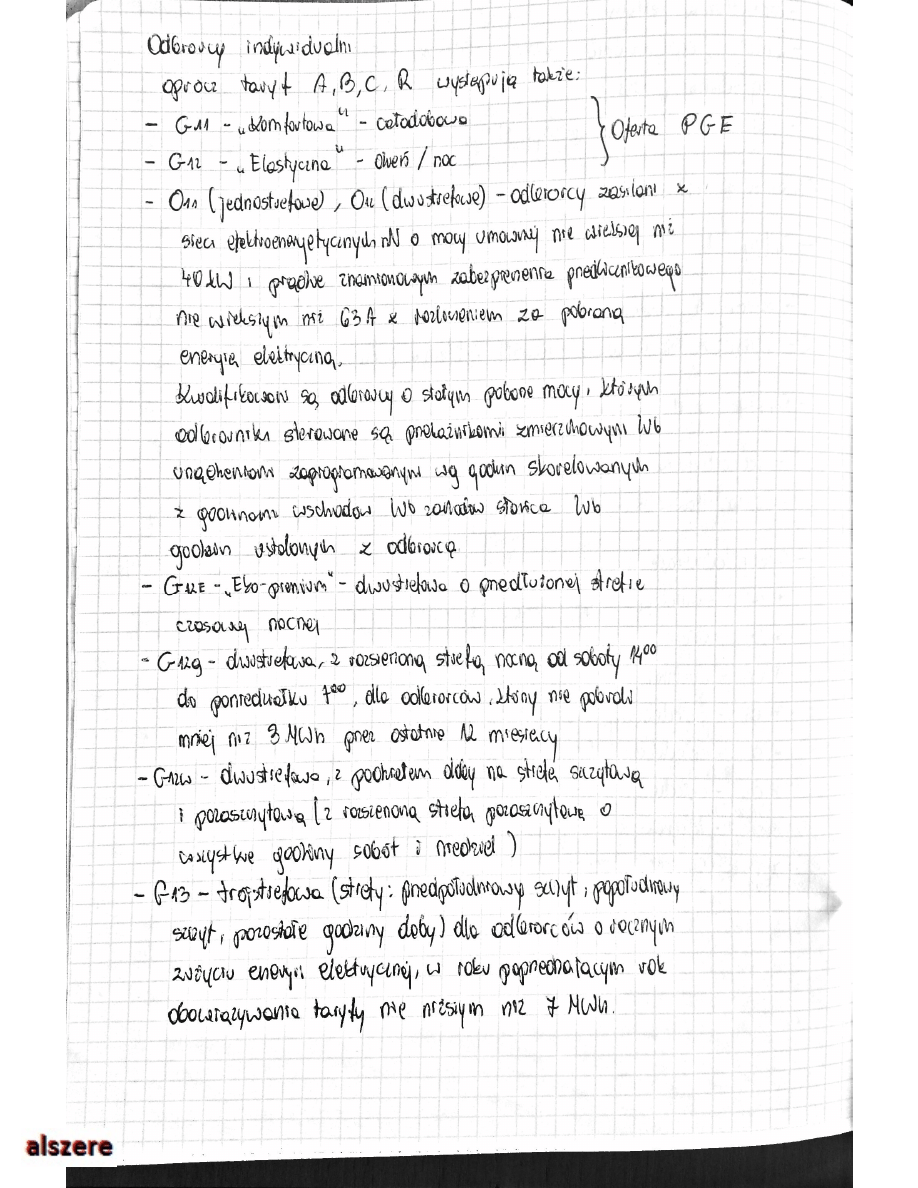 Odbiorcy indywidualni
oprócz taryf A, B, C, R występują także:
- G11 - „Komfortowa" - całodobowa
- G12 - „Elastyczna" - dzień / noc
} Oferta PGE
- O11 (jednostrefowe), O12 (dwustrefowe) - odbiorcy zasilani z
sieci elektroenergetycznych nN o mocy umownej nie większej niż
40 kW i prądzie znamionowym zabezpieczenia przedlicznikowego
nie większym niż 63A z rozliczeniem za pobraną
energię elektryczną.
Kwalifikowani są odbiorcy o stałym poborze mocy, których
odbiorniki sterowane są przekaźnikami zmierzchowymi lub
urządzeniami zaprogramowanymi wg godzin skorelowanych
z godzinami wschodów lub zachodów słońca lub
godzin ustalonych z odbiorcą
- G12E - „Eko-premium" - dwustrefowa o przedłużonej strefie
czasowej nocnej
- G12g - dwustrefowa, z rozszerzoną strefą nocną od soboty 14⁰⁰
do poniedziałku 7⁰⁰, dla odbiorców, którzy nie pobrali
mniej niż 3 MWh przez ostatnie 12 miesięcy
- G12w - dwustrefowa, z podziałem doby na strefę szczytową
i pozaszczytową (z rozszerzoną strefą pozaszczytową o
wszystkie godziny sobót i niedziel)
- G13 - trójstrefowa (strefy: przedpołudniowy szczyt, popołudniowy
szczyt, pozostałe godziny doby) dla odbiorców o rocznym
zużyciu energii elektrycznej, w roku poprzedzającym rok
obowiązywania taryfy nie niższym niż 7 MWh.
alszere